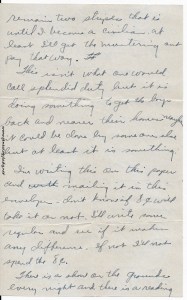 remain two stripes that is
until I become a civilian. at
least I'll get the mustering out
pay that way.
This isn't what one would
call splendid duty but it is
doing something to get the boys
back and nearer their homes.
it could be done by someone else
but at least it is something.
I'm writing this on this paper
and mailing it in this
envelope. Don't know if I
like it or not. I'll write some
regular and see if it makes
any difference. if not I'll not
spend the 8¢.
There is a show on the grounds
every night and there is a reading